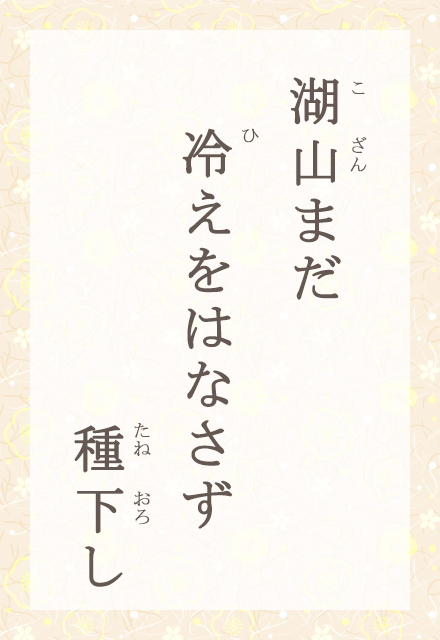 湖山まだ
冷えをはなさず
種下し
こ
ざん
ひ
たね
おろ